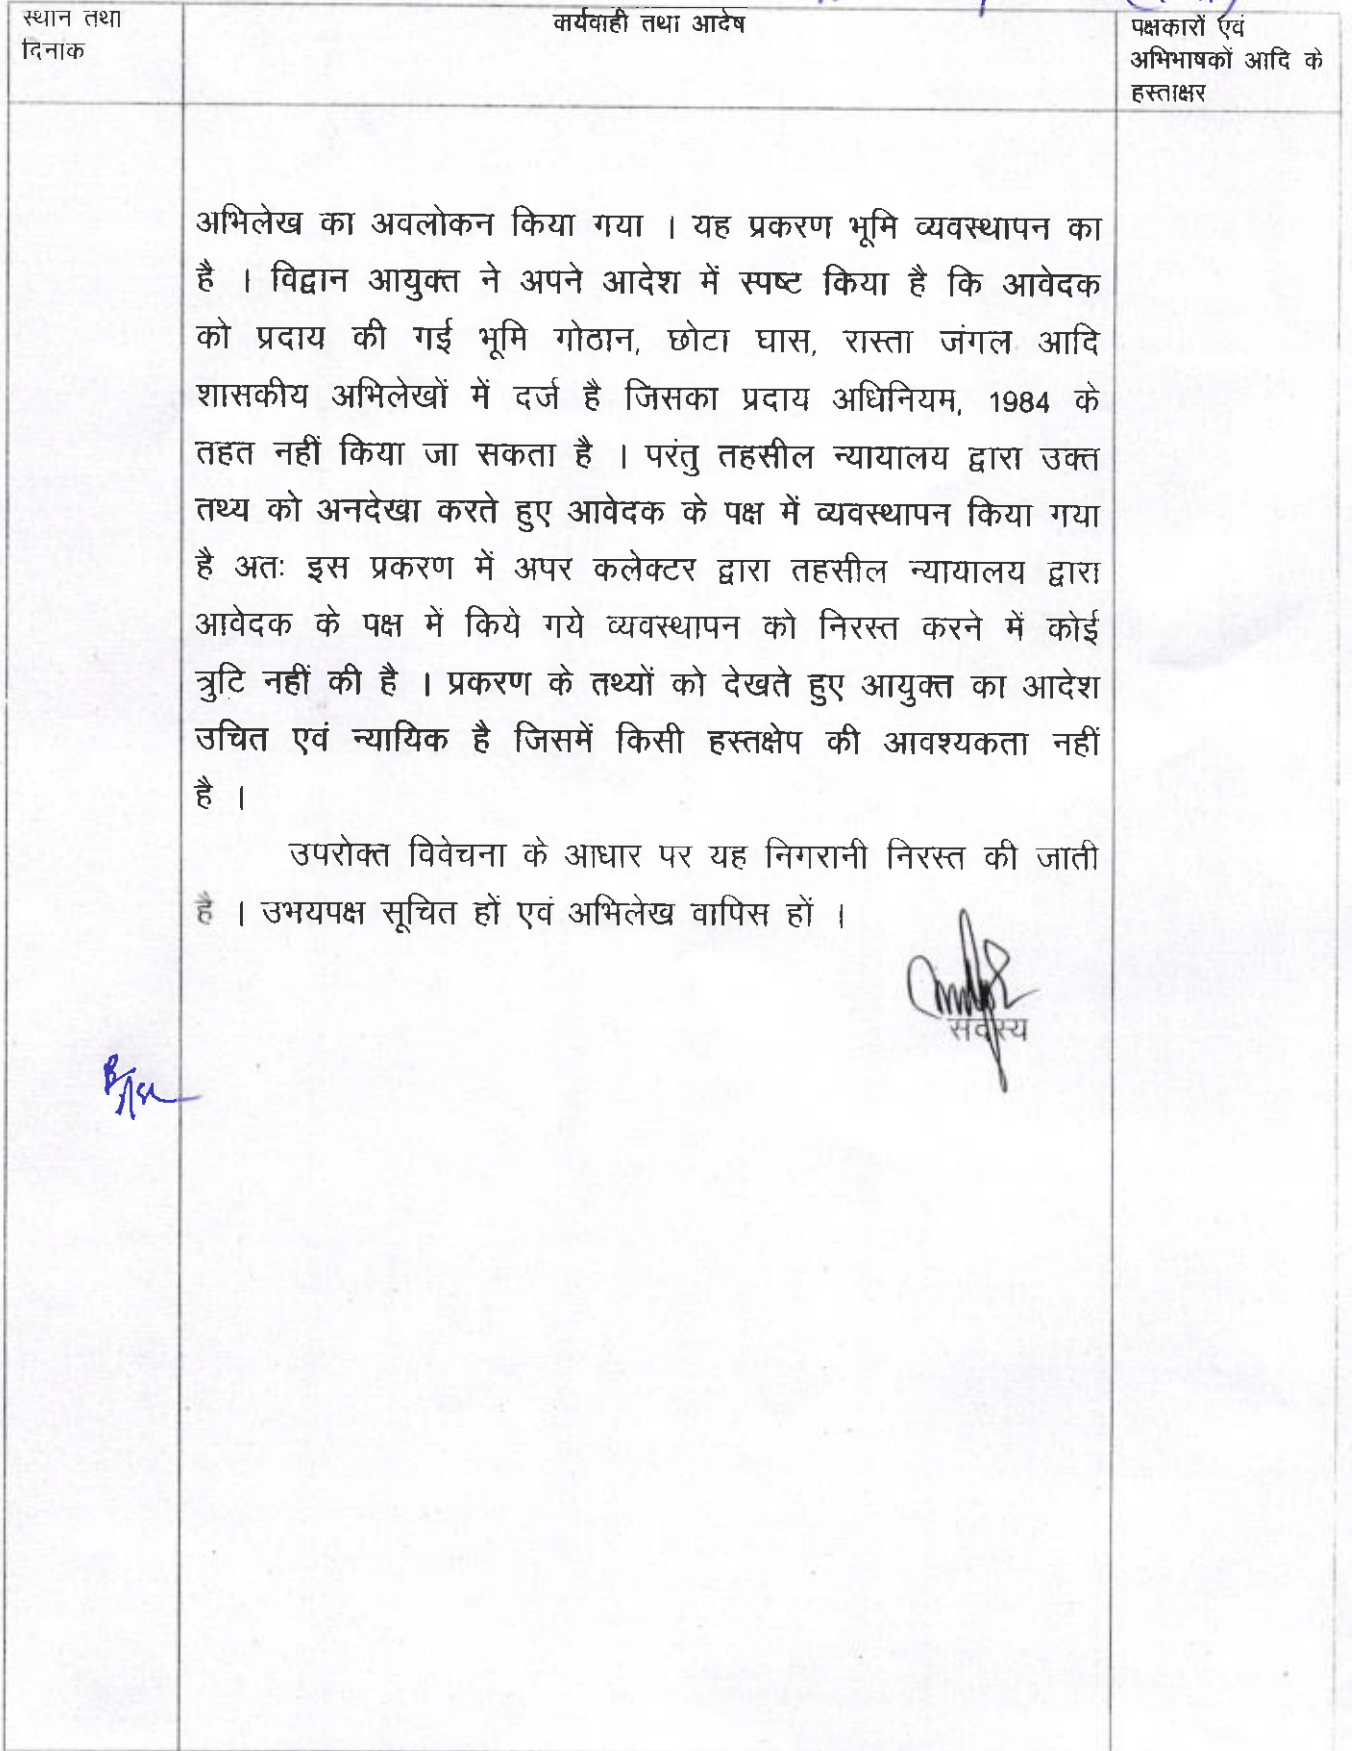 स्थान तथा
दिनांक
कार्यवाही तथा आदेष
पक्षकारों एवं
अभिभाषकों आदि के
हस्ताक्षर
अभिलेख का अवलोकन किया गया । यह प्रकरण भूमि व्यवस्थापन का
है । विद्वान आयुक्त ने अपने आदेश में स्पष्ट किया है कि आवेदक
को प्रदाय की गई भूमि गोठान, छोटा घास, रास्ता जंगल आदि
शासकीय अभिलेखों में दर्ज है जिसका प्रदाय अधिनियम, 1984 के
तहत नहीं किया जा सकता है । परंतु तहसील न्यायालय द्वारा उक्त
तथ्य को अनदेखा करते हुए आवेदक के पक्ष में व्यवस्थापन किया गया
है अतः इस प्रकरण में अपर कलेक्टर द्वारा तहसील न्यायालय द्वारा
आवेदक के पक्ष में किये गये व्यवस्थापन को निरस्त करने में कोई
त्रुटि नहीं की है । प्रकरण के तथ्यों को देखते हुए आयुक्त का आदेश
उचित एवं न्यायिक है जिसमें किसी हस्तक्षेप की आवश्यकता नहीं
है ।
उपरोक्त विवेचना के आधार पर यह निगरानी निरस्त की जाती
है । उभयपक्ष सूचित हों एवं अभिलेख वापिस हों ।
सदस्य